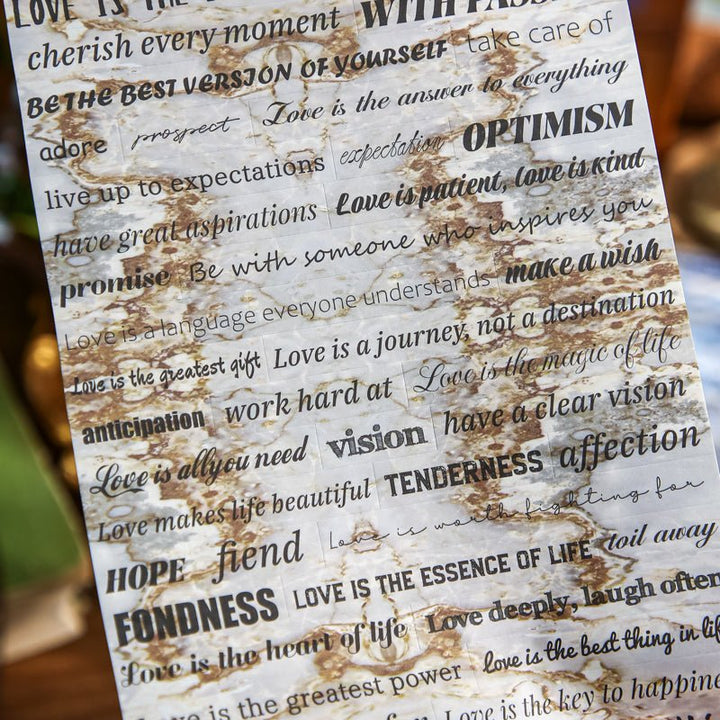 LOVE IS THE
cherish every moment WITH PASS
BE THE BEST VERSION OF YOURSELF take care of
adore prospect Love is the answer to everything
live up to expectations expectation OPTIMISM
have great aspirations Love is patient, love is kind
promise Be with someone who inspires you
Love is a language everyone understands make a wish
Love is the greatest gift Love is a journey, not a destination
anticipation work hard at Love is the magic of life
Love is all you need vision have a clear vision
Love makes life beautiful TENDERNESS affection
HOPE fiend Love is worth fighting for
FONDNESS LOVE IS THE ESSENCE OF LIFE toil away
Love is the heart of life Love deeply, laugh often
Love is the greatest power love is the best thing in life
Love is the key to happine